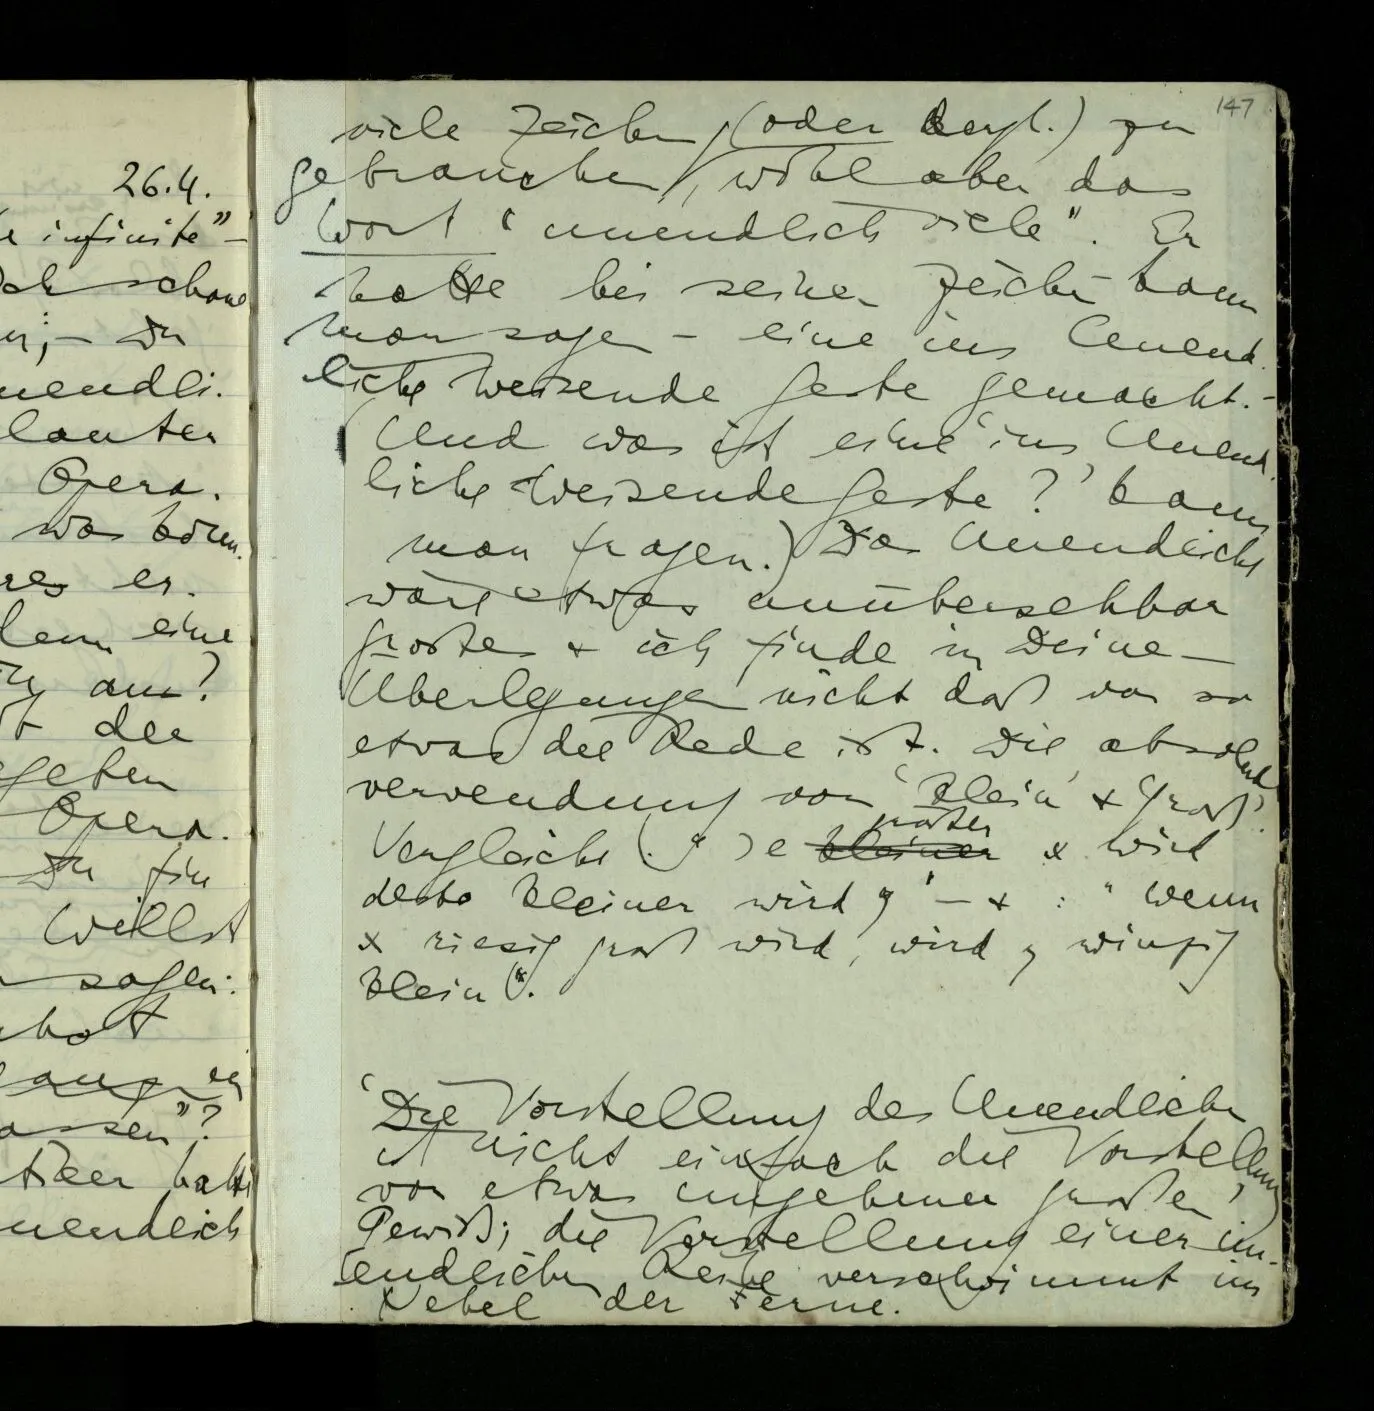 26.4.
infinite" –
schone
; – Du
nendli.
lauter
Opera.
was könn.
er.
eine
an?
der
geben
Opera.
Du
Willst
sagen:
hat
lang
assen"?
hatte
nendlich
147
viele Zeichen (oder dergl.) zu
gebrauchen, wohl aber das
Wort "unendlich viele". Er
hatte bei seinen Zeichen – kann
man sagen – eine ins Unend-
liche weisende Geste gemacht. –
(Und was ist eine 'ins Unend-
liche weisende Geste?' kann
man fragen.) Das Unendliche
wäre etwas unübersehbar
großes & ich finde in Deinen
Überlegungen nicht daß von so
etwas die Rede ist. Die absolute
verwendung von 'klein' & 'groß'.
größer
Vergleiche: "Je kleiner x wird
desto kleiner wird y" – & : "wenn
x riesig groß wird, wird y winzig
klein".
'Die Vorstellung des Unendlichen
ist nicht einfach die Vorstellung
von etwas ungeheuer großen',
Gewiß; die Vorstellung einer un-
endlichen Reihe verschwimmt im
Nebel der Ferne.